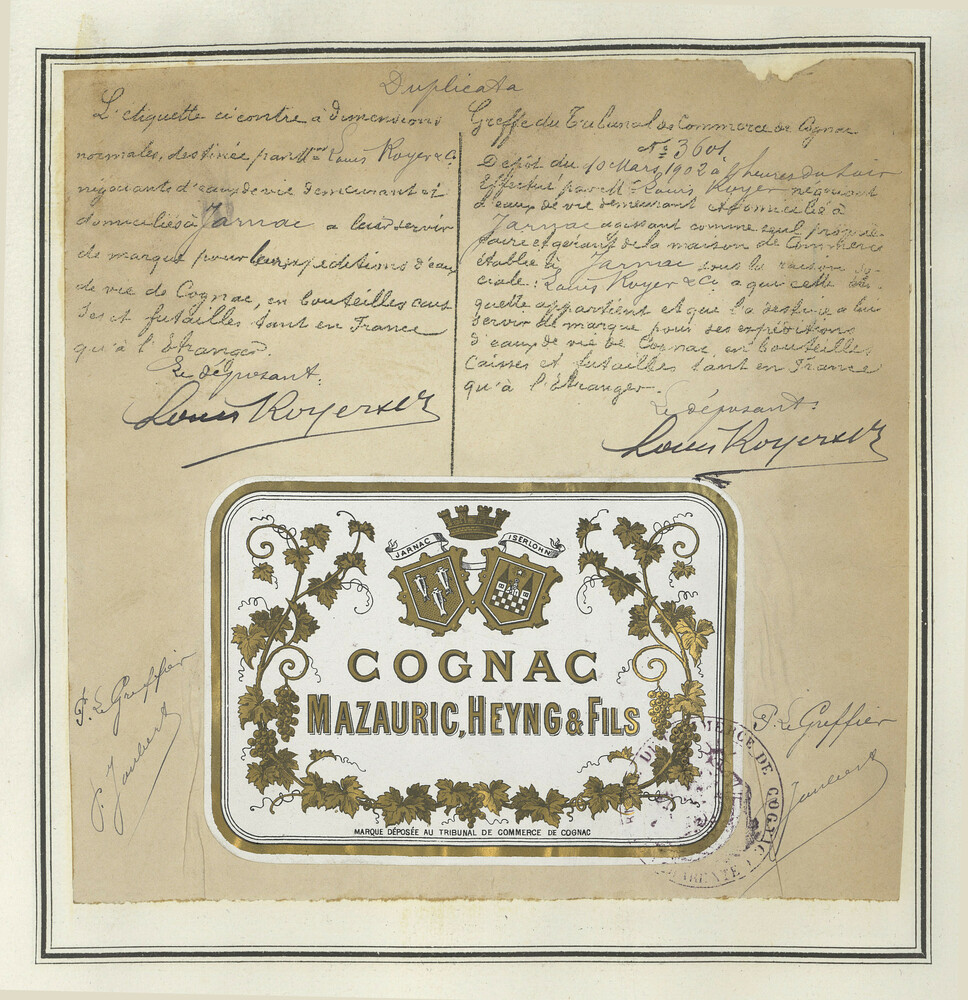 Duplicata
L'etiquette ci contre à dimensions
normales, destinée par Mrs Louis Royer & Co
négociants d'eaux de vie demeurant et
domiciliés à Jarnac a leur servir
de marque pour leurs expeditions d'eaux
de vie de Cognac, en bouteilles cais
ses et futailles tant en France
qu'à l'étranger.
Le déposant:
Louis Royer & Co
Greffe du Tribunal de Commerce de Cognac
No 3601
Dépôt du 10 Mars 1902 à heures du soir
Effectué par Mr Louis Royer négociant
d'eaux de vie demeurant et domicilié à
Jarnac agissant comme seul proprié-
taire et gérant de la maison de Commerce
établie à Jarnac sous la raison so-
ciale: Louis Royer & Co a qui cette éti-
quette appartient et que l'a destinée a lui
servir de marque pour ses expéditions
d'eaux de vie de Cognac, en bouteilles
caisses et futailles tant en France
qu'à l'étranger.
Le déposant:
Louis Royer & Co
JARNAC
ISERLOHN
COGNAC
MAZAURIC, HEYNG & FILS
MARQUE DÉPOSÉE AU TRIBUNAL DE COMMERCE DE COGNAC
P. Le Greffier
P. Le Greffier
COMMERCE DE COGNAC
CHARENTE